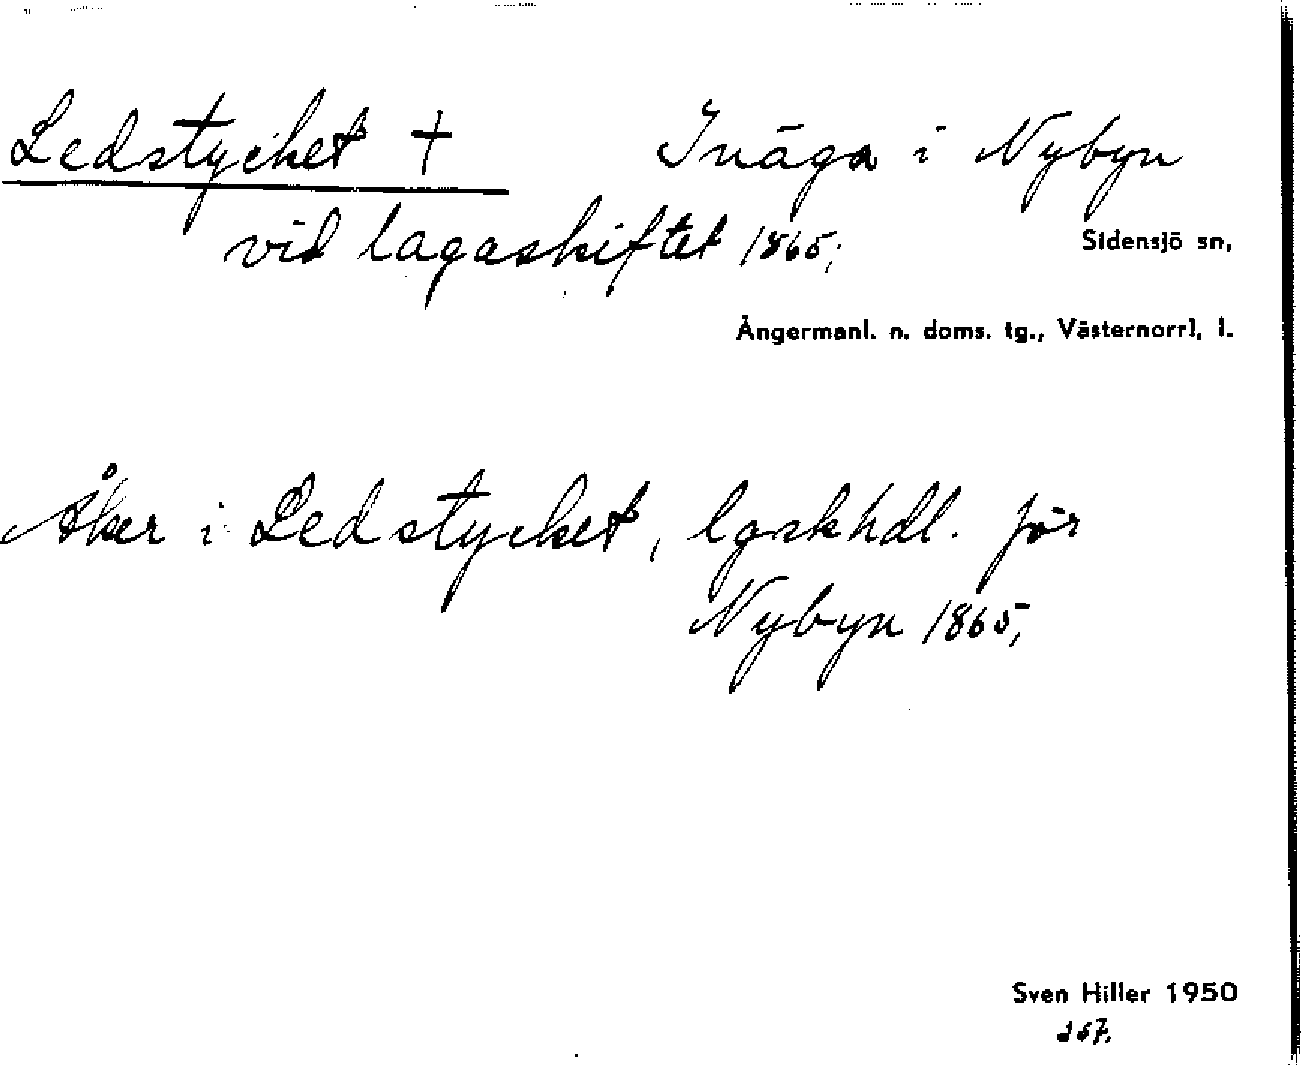 Ledstycket † Inäga i Nybyn
vid lagaskiftet 1865;
Sidensjö sn,
Ångermanl. n. doms. tg., Västernorrl. l.
Åker i Ledstycket, lgskhdl. för
Nybyn 1865,
Sven Hiller 1950
257.